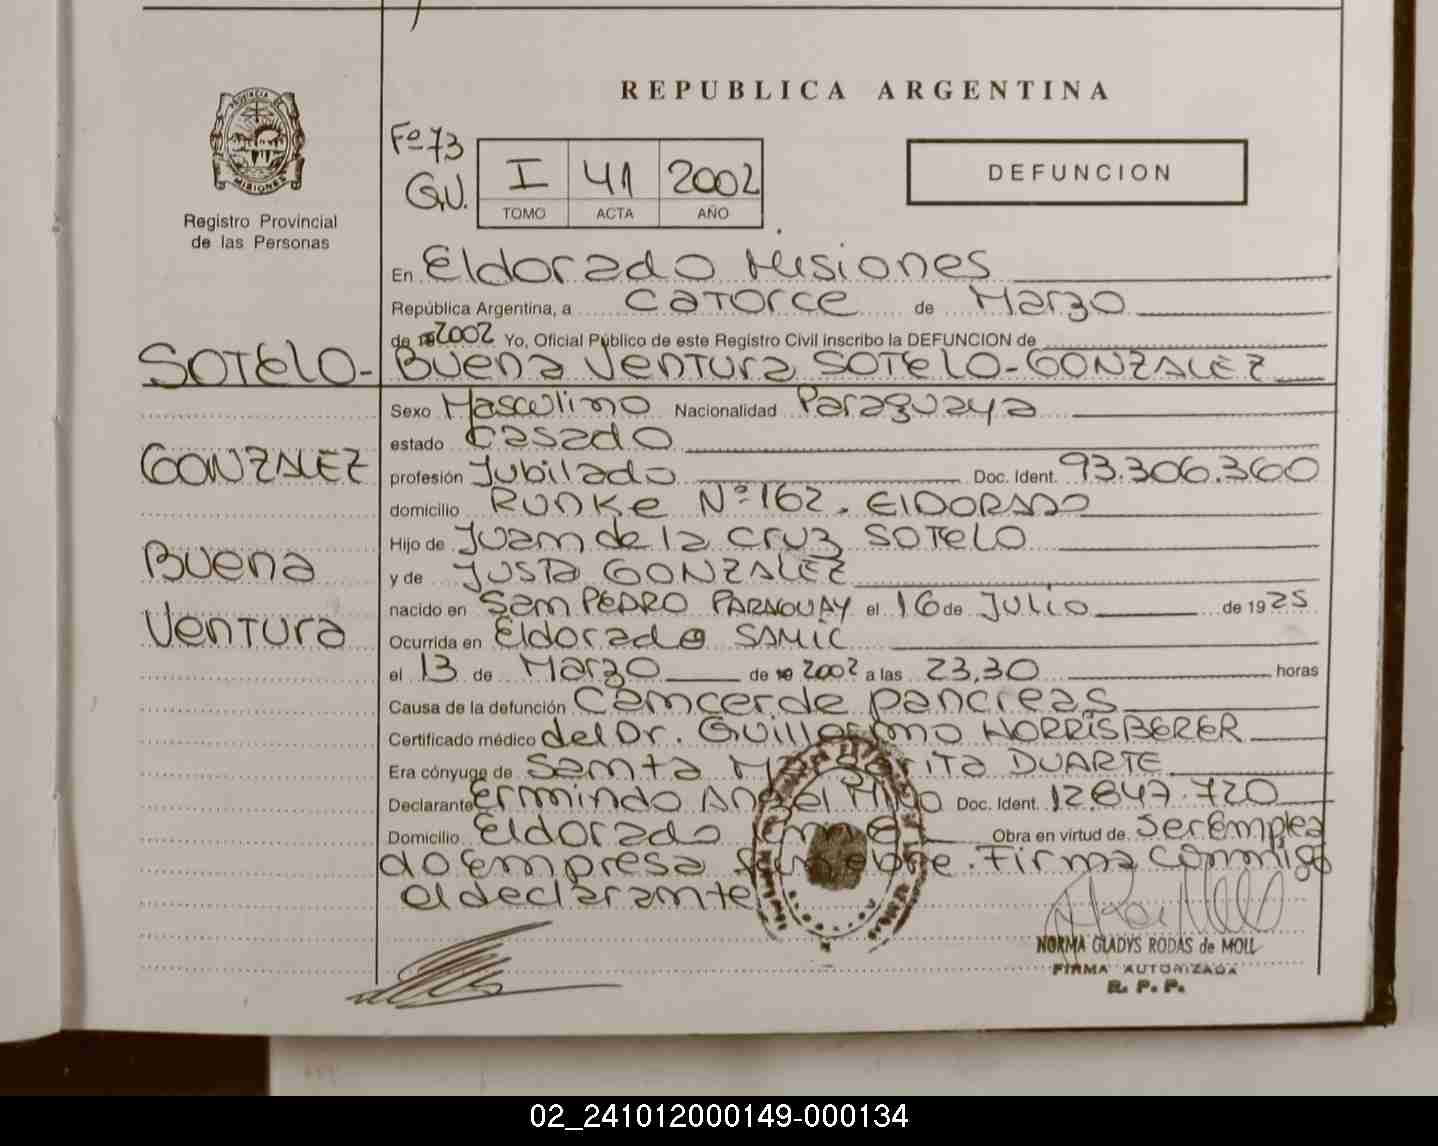 REPUBLICA ARGENTINA
PROVINCIA DE
MISIONES
Registro Provincial
de las Personas
Fº 73
G.V.
I 41 2002
TOMO ACTA AÑO
DEFUNCION
En Eldorado Misiones
República Argentina, a catorce de Marzo
de 2002 Yo, Oficial Público de este Registro Civil inscribo la DEFUNCION de
SOTELO- Buena Ventura SOTELO-GONZALEZ
Sexo Masculino Nacionalidad Paraguaya
estado casado
GONZALEZ
profesión Jubilado Doc. Ident. 93.306.360
domicilio RUNKE Nº 162. ELDORADO
Hijo de Juan de la CRUZ SOTELO
Buena
y de JUSTA GONZALEZ
nacido en San PEDRO PARAGUAY el 16 de Julio de 1925
Ventura
Ocurrida en Eldorado SAMIC
el 13 de Marzo de 2002 a las 23,30 horas
Causa de la defunción Cancer de pancreas
Certificado médico del Dr. Guillermo NORRISBERER
Era cónyuge de Santa Margarita DUARTE
Declarante Ermindo Angel Doc. Ident. 12.847.720
Domicilio Eldorado Obra en virtud de Ser Emplea
do Empresa Funebre. Firma conmigo
el declarante
NORMA GLADYS RODAS de MOLL
FIRMA AUTORIZADA
R. P. P.
02_241012000149-000134